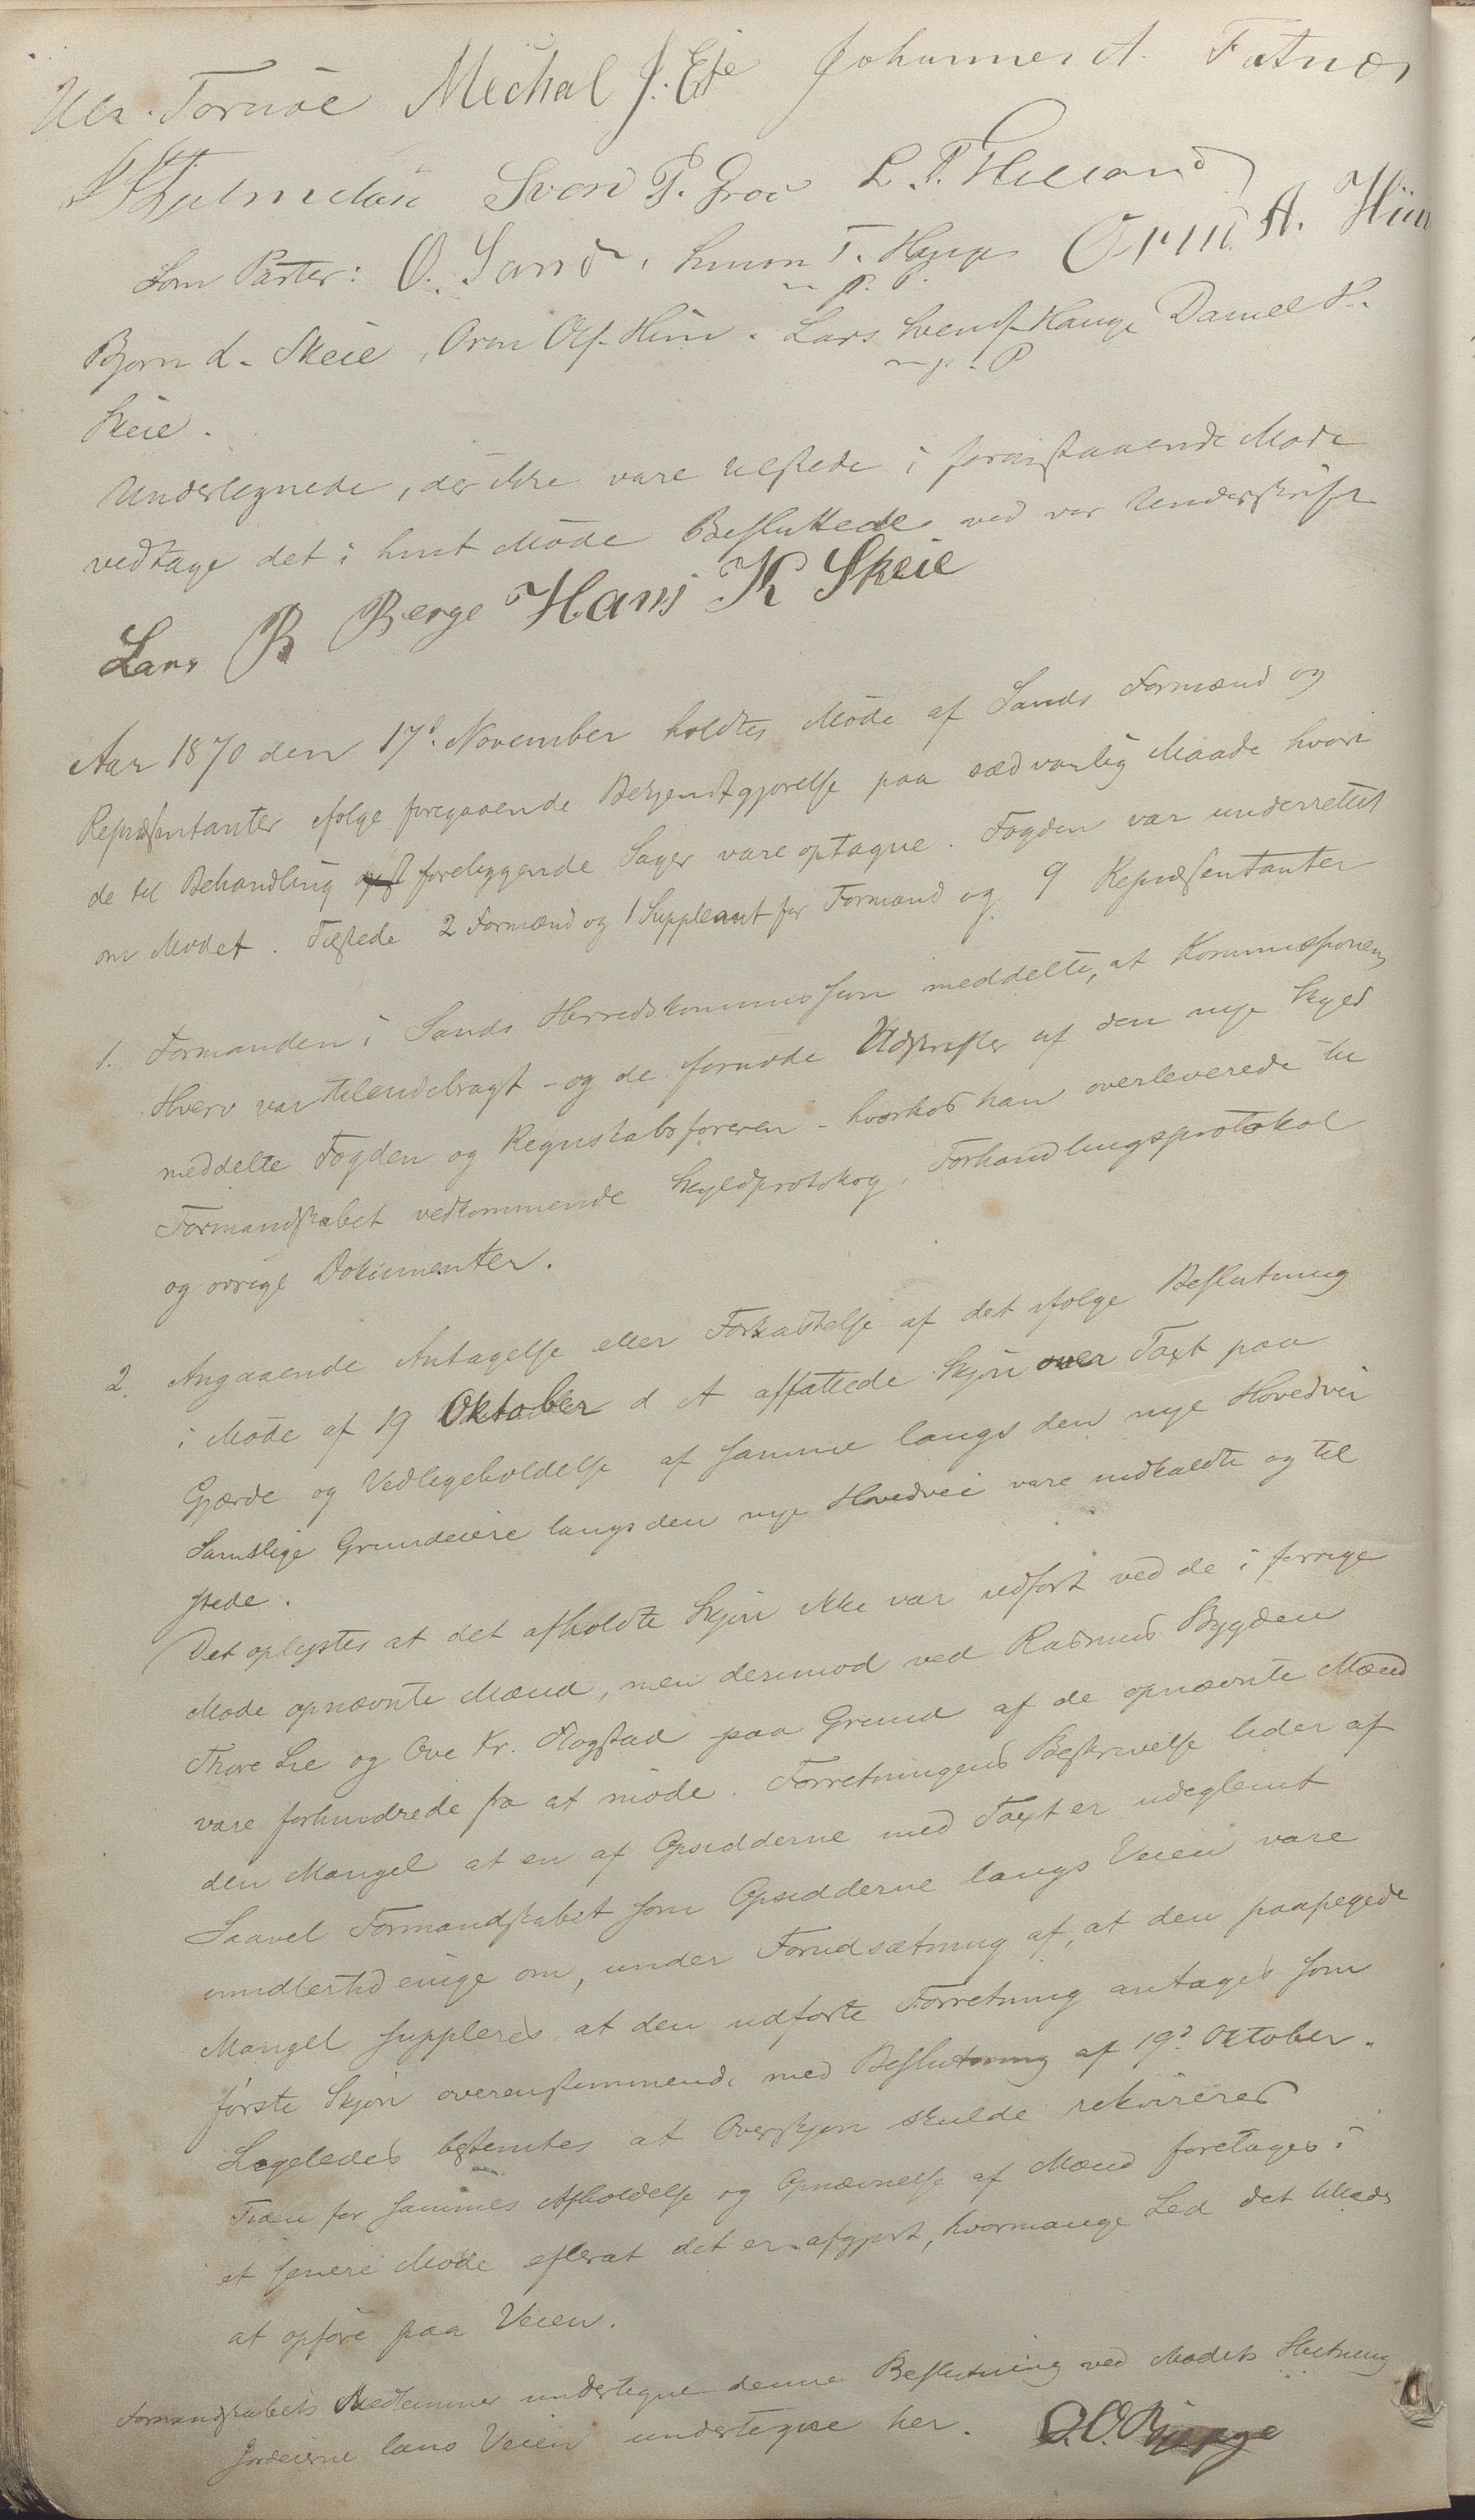 Tornöe Michal J. Eie Johannes A. Fatnæs
Svend P. Groe L. P. Helland
Som Parter: O. Sand, Simon T. Hauge Orm A. Hiim
m. p. P.
Bjørn L. Skeie, Orm Ols. Hiim. Lars Svends. Hauge Daniel K.
m. p. P
Skeie.
Undertegnede, der ikke vare tilstede i foranstaaende Møde
vedtage det i hint Møde Besluttede ved vor Underskrift
Lars B Berge Hans K Skeie
Aar 1870 den 17d. November holdtes Møde af Sands Formænd og
Repræsentanter ifølge foregaaende Bekjendtgjørelse paa sædvanlig Maade hvori
de til Behandling foreliggende Sager vare optagne. Fogden var underrettet
om Mødet. Tilstede 2 Formænd og 1 Suppleant for Formænd og 9 Repræsentanter
1. Formanden i Sands Herredskommission meddelte, at Kommissionens
Hverv var tilendebragt - og de fornødne Udskrifter af den nye Skyld
meddelte Fogden og Regnskabsføreren - hvorhos han overleverede til
Formandskabet vedkommende Skyldprotokog, Forhandlingsprotokol
og øvrige Dokumenter.
2. Angaaende Antagelse eller Forkastelse af det ifølge Beslutning
i Møde af 19 Oktober d A affattede Skjøn over Taxt paa
Gjærde og Vedligeholdelse af samme langs den nye Hovedvei
Samtlige Grundeiere langs den nye Hovedvei vare indkaldte og til
stede.
Det oplystes at det afholdte Skjøn ikke var udført ved de i forrige
Møde opnævnte Mænd, men derimod ved Rasmus Bygden
Thore Lie og Ove Kr. Hogstad paa Grund af de opnævnte Mænd
vare forhindrede fra at møde. Forretningens Beskrivelse lider af
den Mangel at en af Opsidderne med Taxt er udeglemt
Saavel Formandskabet som Opsidderne langs Veien vare
imidlertid enige om, under Forudsætning af, at den paapegede
Mangel suppleres, at den udførte Forretning antages som
første Skjøn overenstemmende med Beslutning af 19d Oktober.
Ligeledes bestemtes at Overskjøn skulde rekvireres
Tiden for sammes Afholdelse og Opnævnelse af Mænd foretages i
et senere Møde efterat det er afgjort, hvormange Led det tillades
at opføre paa Veien.
Formandskabets Medlemmer undertegne denne Beslutning ved Mødets Slutning
Jordeierne langs Veien undertegne her.